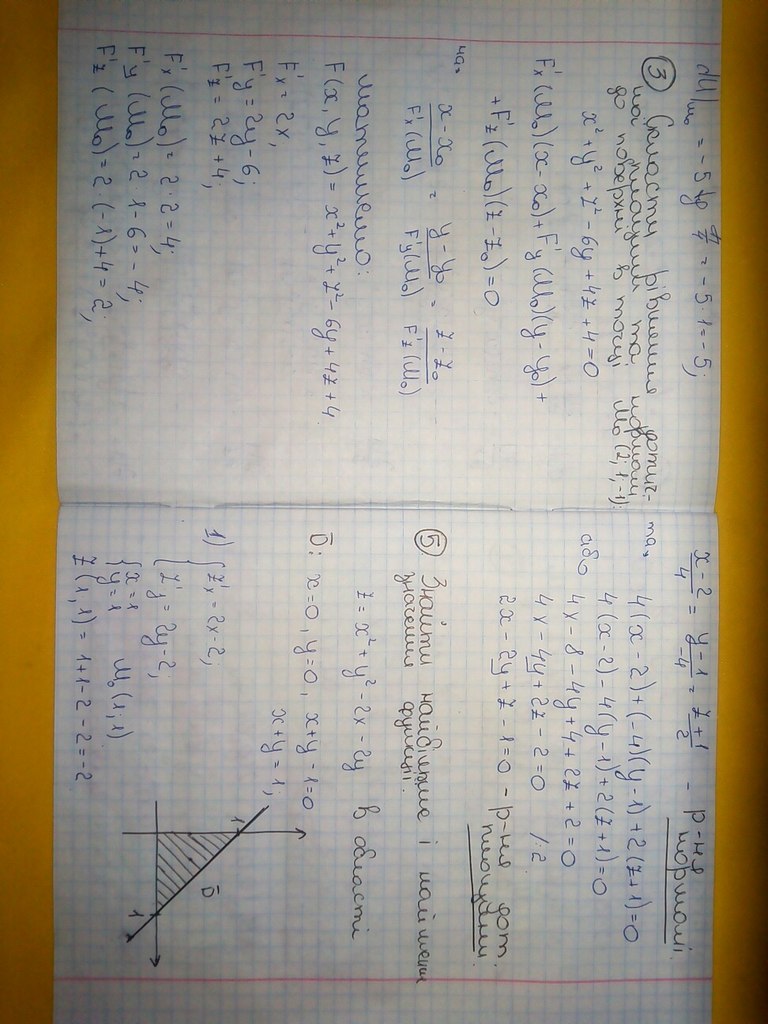 dU|м₀ = -5 tg π/4 = -5·1 = -5;
③ Скласти рівняння дотич-
ної площини та нормалі
до поверхні в точці M₀ (2; 1; -1):
x² + y² + z² - 6y + 4z + 4 = 0
F'x (M₀)(x - x₀) + F'y (M₀)(y - y₀) +
+ F'z (M₀)(z - z₀) = 0
(x - x₀)/F'x(M₀) = (y - y₀)/F'y(M₀) = (z - z₀)/F'z(M₀)
матимемо:
F(x, y, z) = x² + y² + z² - 6y + 4z + 4
F'x = 2x,
F'y = 2y - 6;
F'z = 2z + 4;
F'x (M₀) = 2·2 = 4;
F'y (M₀) = 2·1 - 6 = -4;
F'z (M₀) = 2·(-1) + 4 = 2;
(x - 2)/4 = (y - 1)/-4 = (z + 1)/2 - р-ня
нормалі.
та
4(x - 2) + (-4)(y - 1) + 2(z + 1) = 0
4(x - 2) - 4(y - 1) + 2(z + 1) = 0
або 4x - 8 - 4y + 4 + 2z + 2 = 0
4x - 4y + 2z - 2 = 0 /:2
2x - 2y + z - 1 = 0 - р-ня дот.
площини.
⑤ Знайти найбільше і найменше
значення функції.
z = x² + y² - 2x - 2y в області
D̄: x = 0, y = 0, x + y - 1 = 0
x + y = 1,
1) { z'x = 2x - 2;
{ z'y = 2y - 2,
{ x = 1
{ y = 1 M₀ (1; 1)
z (1; 1) = 1 + 1 - 2 - 2 = -2
1
D̄
1